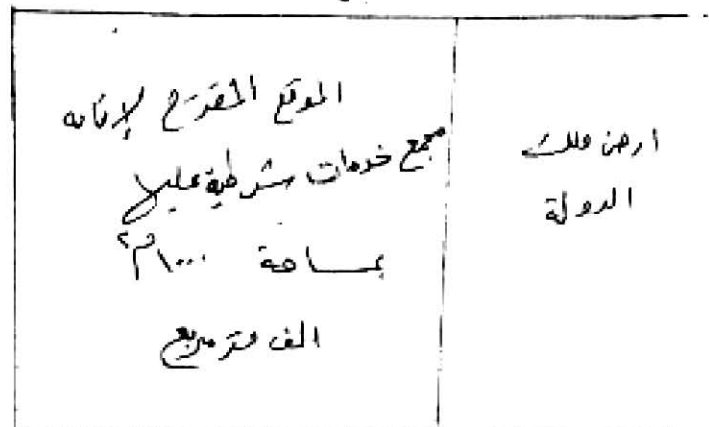 ارض ملك
الدولة
الموقع المقترح لإقامه
مجمع خدمات شرطية عليها
بمساحة ١٠٠٠م٢
الف متر مربع